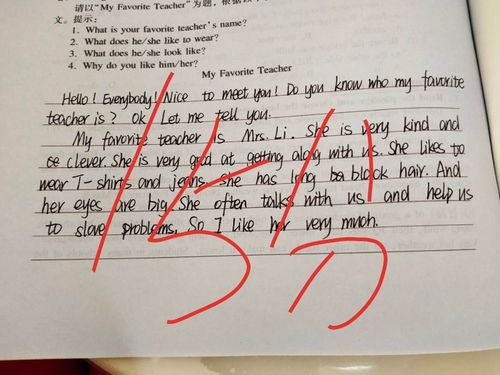 请以“My Favorite Teacher”为题，根据以
文。提示：
1. What is your favorite teacher's name?
2. What does he/she like to wear?
3. What does he/she look like?
4. Why do you like him/her?
My Favorite Teacher
Hello! Everybody! Nice to meet you! Do you know who my favorite
teacher is? Ok Let me tell you.
My favorite teacher is Mrs. Li. She is very kind and
ce clever. She is very good at getting along with us. She likes to
wear T-shirts and jeans. She has long ba black hair. And
her eyes are big. She often talks with us and help us
to slove problems. So I like her very much.
15分